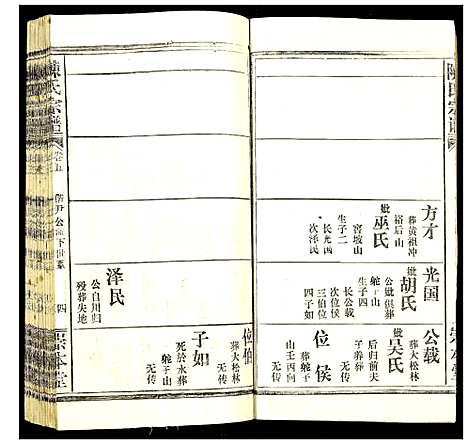 陳氏宗譜
方才
葬黄祖冲
裕后山
妣巫氏
窖坡山
生子二
长光国
次泽民
光国
公妣俱葬
鸵子山
妣胡氏
生子四
长公载
次位侯
三伯位
四子如
公载
葬大松林
妣吴氏
后归前夫
子养葬
无传
位侯
葬鸵子
山壬丙向
无传
陳氏宗譜
卷五
公派下世系
四
崇本堂
泽民
公自川归
殁葬失地
位伯
葬大松林
无传
子如
死於水葬
鸵子山
无传